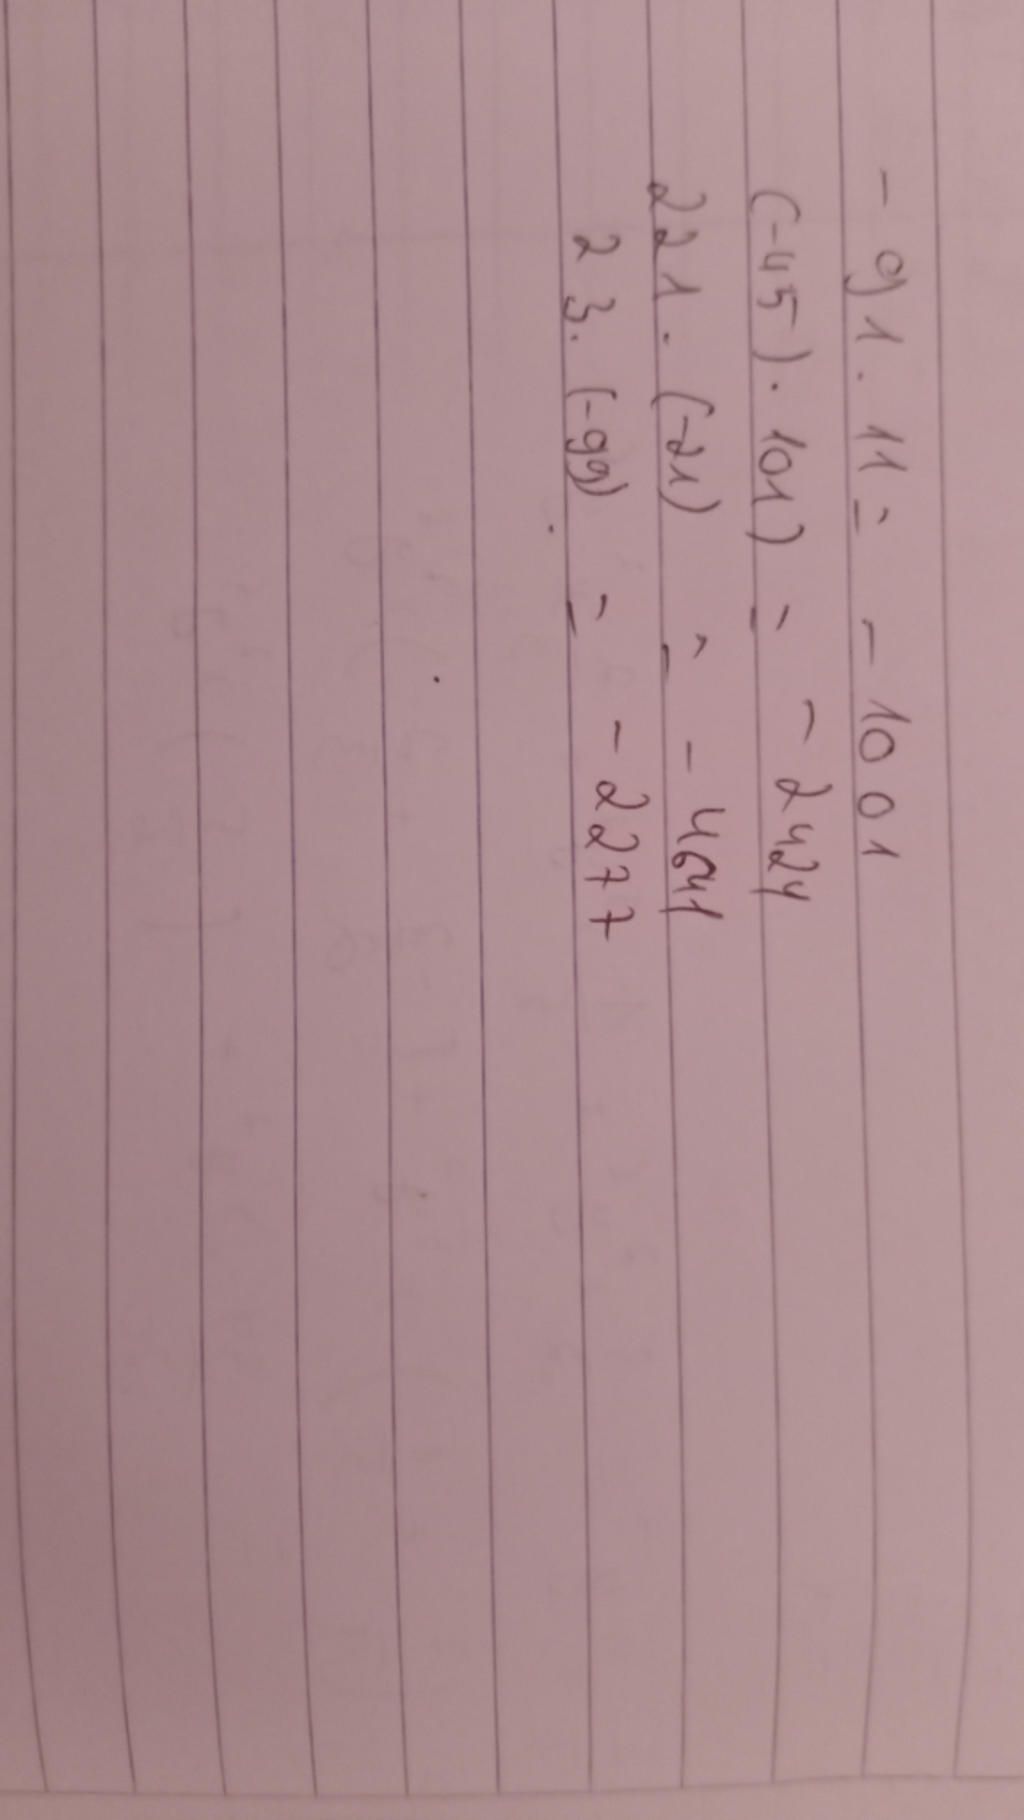 - 91. 11 = - 1001
(-45). 101) = - 2424
221. (-21) = - 4641
23. (-99) = - 2277